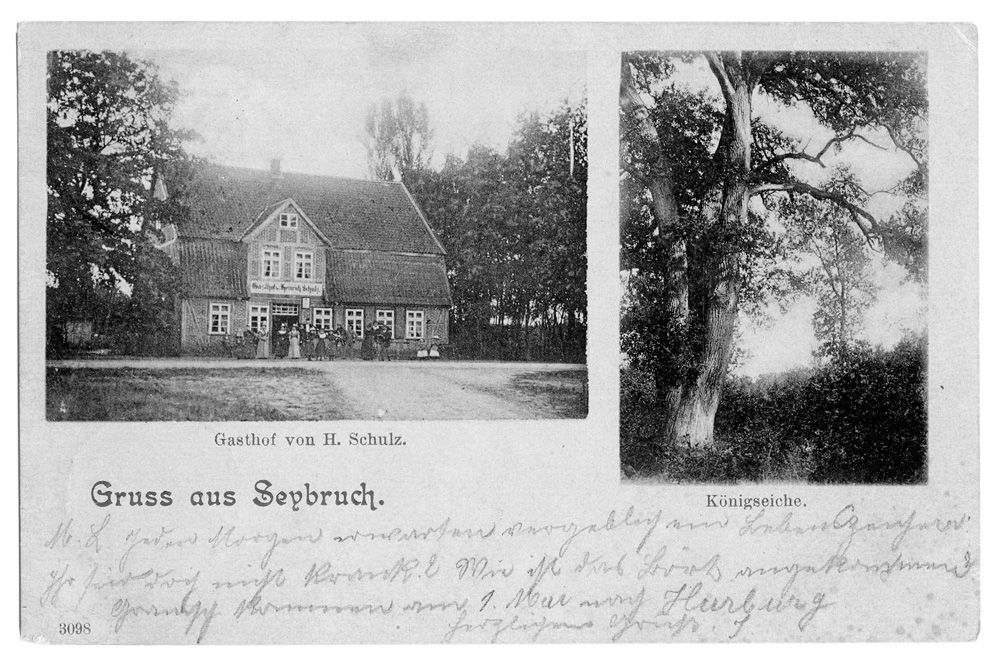 Gasthof v. Heinrich Schulz.
Gasthof von H. Schulz.
Königseiche.
Gruss aus Seybruch.
M. L. jeden Morgen erwarten vergeblich ein Lebenszeichen
Ihr seid doch nicht krank? Wie ist das angekommen?
kommen am 1. Mai nach Harburg
herzlichen Gruß.
3098